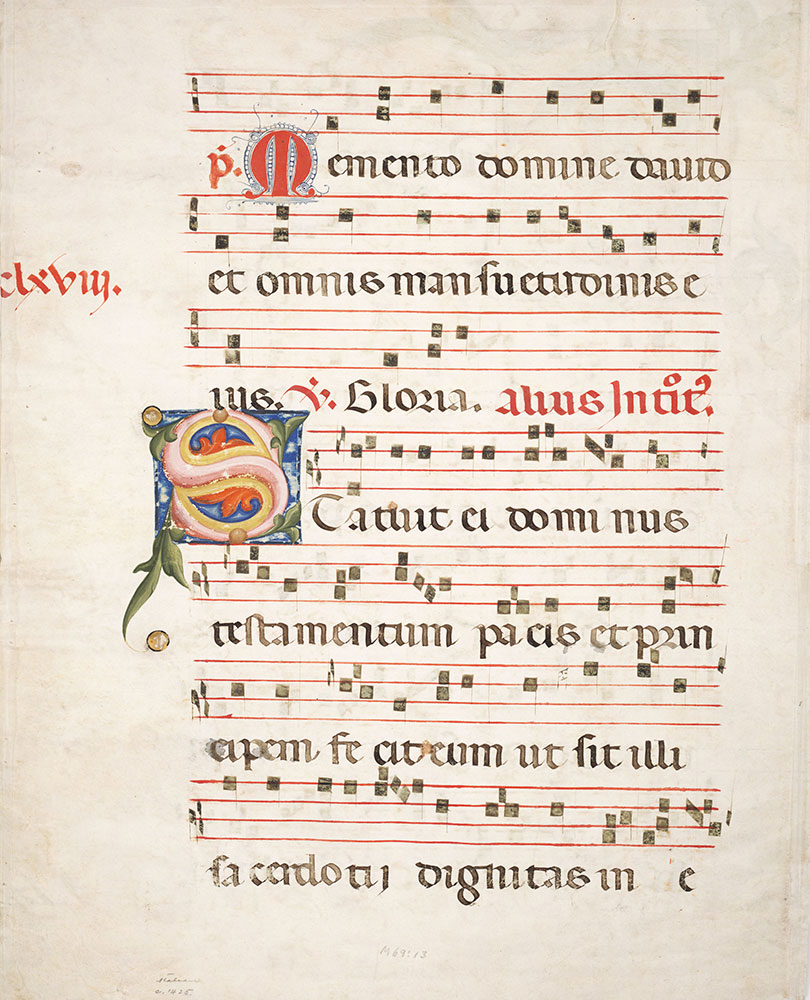 p̃. Memento domine dauid
et omnis mansuetudinis e
clxviij.
ius. Ṽ. Gloria. alius Introit᷒.
STatuit ei dominus
testamentum pacis et prin
cipem fecit eum ut sit illi
sacerdotij dignitas in e
M69:13